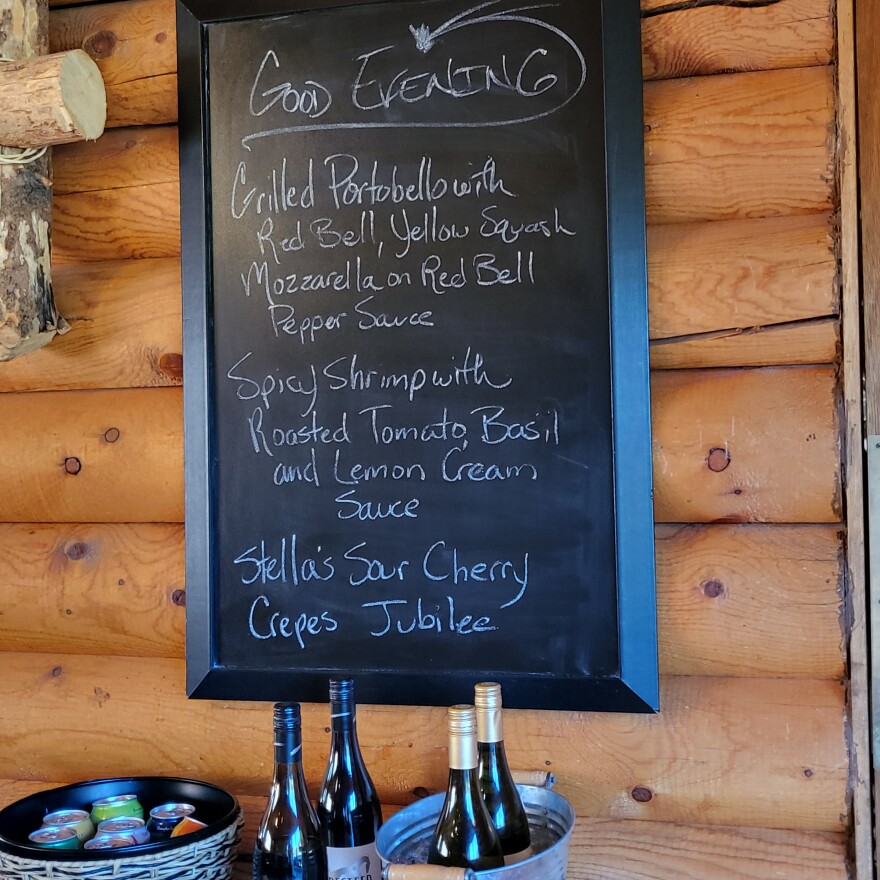 Good Evening
Grilled Portobello with
Red Bell, Yellow Squash
Mozzarella on Red Bell
Pepper Sauce
Spicy Shrimp with
Roasted Tomato, Basil
and Lemon Cream
Sauce
Stella's Sour Cherry
Crepes Jubilee